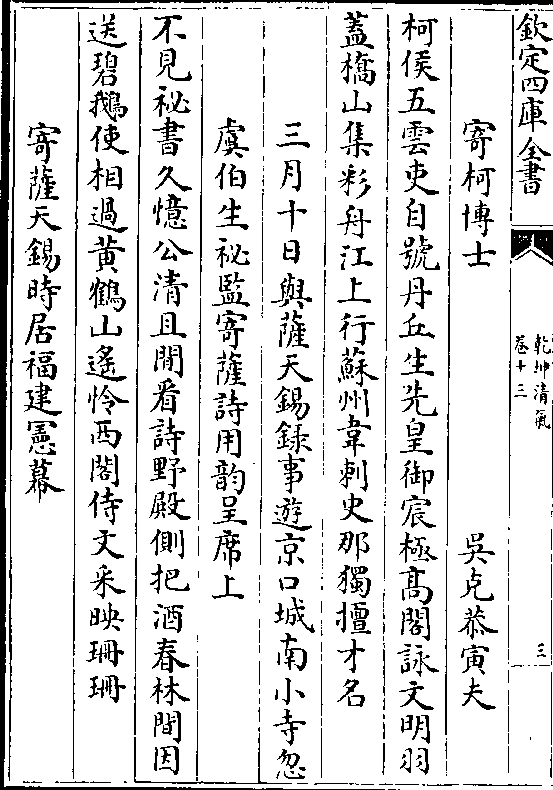 欽定四庫全書
乾坤清氣
卷十三
三
寄柯博士　吳克恭寅夫
柯侯五雲吏自號丹丘生先皇御宸極高閣詠文明羽
蓋橋山集彩舟江上行蘇州韋刺史那獨擅才名
三月十日與薩天錫錄事遊京口城南小寺忽
虞伯生秘監寄薩詩用韵呈席上
不見祕書久憶公清且閒看詩野殿側把酒春林間因
送碧鵝使相過黃鶴山遙憐西閣侍文采映珊珊
寄薩天錫時居福建憲幕